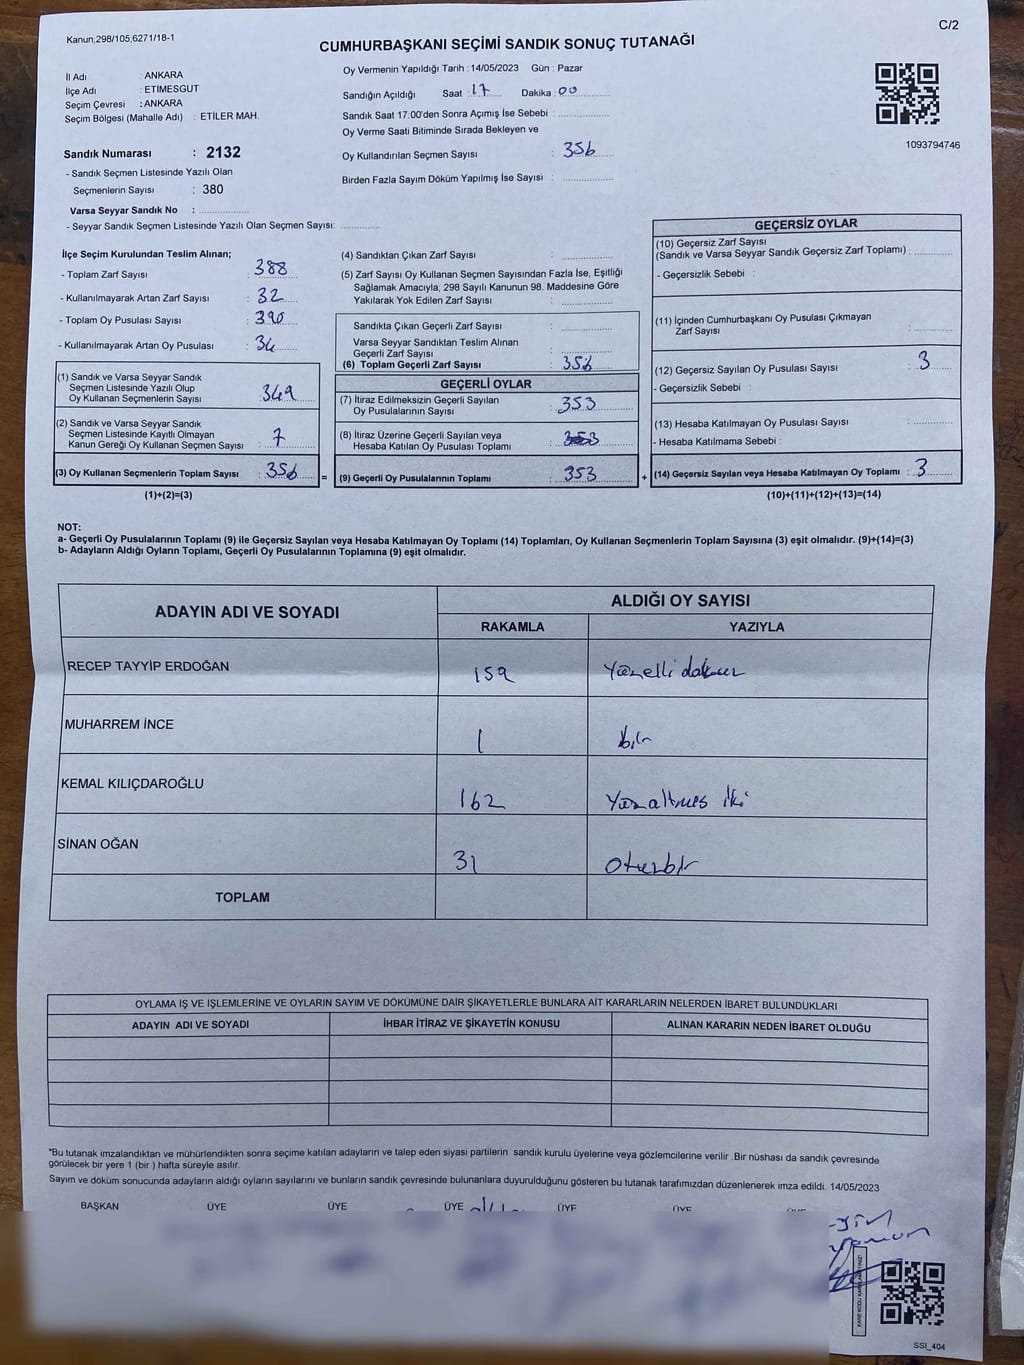 Kanun,298/105,6271/18-1
C/2
CUMHURBAŞKANI SEÇİMİ SANDIK SONUÇ TUTANAĞI
İl Adı : ANKARA
İlçe Adı : ETİMESGUT
Seçim Çevresi : ANKARA
Seçim Bölgesi (Mahalle Adı) : ETİLER MAH.
Oy Vermenin Yapıldığı Tarih : 14/05/2023 Gün : Pazar
Sandığın Açıldığı Saat : 17 Dakika : 00
Sandık Saat 17:00'den Sonra Açımış İse Sebebi :
Oy Verme Saati Bitiminde Sırada Bekleyen ve
Oy Kullandırılan Seçmen Sayısı : 356
Birden Fazla Sayım Döküm Yapılmış İse Sayısı :
1093794746
Sandık Numarası : 2132
- Sandık Seçmen Listesinde Yazılı Olan
Seçmenlerin Sayısı : 380
Varsa Seyyar Sandık No :
- Seyyar Sandık Seçmen Listesinde Yazılı Olan Seçmen Sayısı:
İlçe Seçim Kurulundan Teslim Alınan;
- Toplam Zarf Sayısı : 388
- Kullanılmayarak Artan Zarf Sayısı : 32
- Toplam Oy Pusulası Sayısı : 390
- Kullanılmayarak Artan Oy Pusulası : 34
(1) Sandık ve Varsa Seyyar Sandık
Seçmen Listesinde Yazılı Olup
Oy Kullanan Seçmenlerin Sayısı : 349
(2) Sandık ve Varsa Seyyar Sandık
Seçmen Listesinde Kayıtlı Olmayan
Kanun Gereği Oy Kullanan Seçmen Sayısı : 7
(3) Oy Kullanan Seçmenlerin Toplam Sayısı : 356
(1)+(2)=(3)
=
(4) Sandıktan Çıkan Zarf Sayısı :
(5) Zarf Sayısı Oy Kullanan Seçmen Sayısından Fazla İse, Eşitliği
Sağlamak Amacıyla; 298 Sayılı Kanunun 98. Maddesine Göre
Yakılarak Yok Edilen Zarf Sayısı :
Sandıkta Çıkan Geçerli Zarf Sayısı :
Varsa Seyyar Sandıktan Teslim Alınan
Geçerli Zarf Sayısı :
(6) Toplam Geçerli Zarf Sayısı : 356
GEÇERLİ OYLAR
(7) İtiraz Edilmeksizin Geçerli Sayılan
Oy Pusulalarının Sayısı : 353
(8) İtiraz Üzerine Geçerli Sayılan veya
Hesaba Katılan Oy Pusulası Toplamı :
(9) Geçerli Oy Pusulalarının Toplamı : 353
+
GEÇERSİZ OYLAR
(10) Geçersiz Zarf Sayısı
(Sandık ve Varsa Seyyar Sandık Geçersiz Zarf Toplamı) :
- Geçersizlik Sebebi :
(11) İçinden Cumhurbaşkanı Oy Pusulası Çıkmayan
Zarf Sayısı :
(12) Geçersiz Sayılan Oy Pusulası Sayısı : 3
- Geçersizlik Sebebi :
(13) Hesaba Katılmayan Oy Pusulası Sayısı :
- Hesaba Katılmama Sebebi :
(14) Geçersiz Sayılan veya Hesaba Katılmayan Oy Toplamı : 3
(10)+(11)+(12)+(13)=(14)
NOT:
a- Geçerli Oy Pusulalarının Toplamı (9) ile Geçersiz Sayılan veya Hesaba Katılmayan Oy Toplamı (14) Toplamları, Oy Kullanan Seçmenlerin Toplam Sayısına (3) eşit olmalıdır. (9)+(14)=(3)
b- Adayların Aldığı Oyların Toplamı, Geçerli Oy Pusulalarının Toplamına (9) eşit olmalıdır.
ADAYIN ADI VE SOYADI ALDIĞI OY SAYISI
RAKAMLA YAZIYLA
RECEP TAYYİP ERDOĞAN 159 Yüzelli dokuz
MUHARREM İNCE 1 bir
KEMAL KILIÇDAROĞLU 162 Yüzaltmış iki
SİNAN OĞAN 31 Otuzbir
TOPLAM
OYLAMA İŞ VE İŞLEMLERİNE VE OYLARIN SAYIM VE DÖKÜMÜNE DAİR ŞİKAYETLERLE BUNLARA AİT KARARLARIN NELERDEN İBARET BULUNDUKLARI
ADAYIN ADI VE SOYADI İHBAR İTİRAZ VE ŞİKAYETİN KONUSU ALINAN KARARIN NEDEN İBARET OLDUĞU
*Bu tutanak imzalandıktan ve mühürlendikten sonra seçime katılan adayların ve talep eden siyasi partilerin sandık kurulu üyelerine veya gözlemcilerine verilir .Bir nüshası da sandık çevresinde
görülecek bir yere 1 (bir ) hafta süreyle asılır.
Sayım ve döküm sonucunda adayların aldığı oyların sayılarını ve bunların sandık çevresinde bulunanlara duyurulduğunu gösteren bu tutanak tarafımızdan düzenlenerek imza edildi. 14/05/2023
BAŞKAN ÜYE ÜYE ÜYE ÜYE ÜYE ÜYE
SSI_404